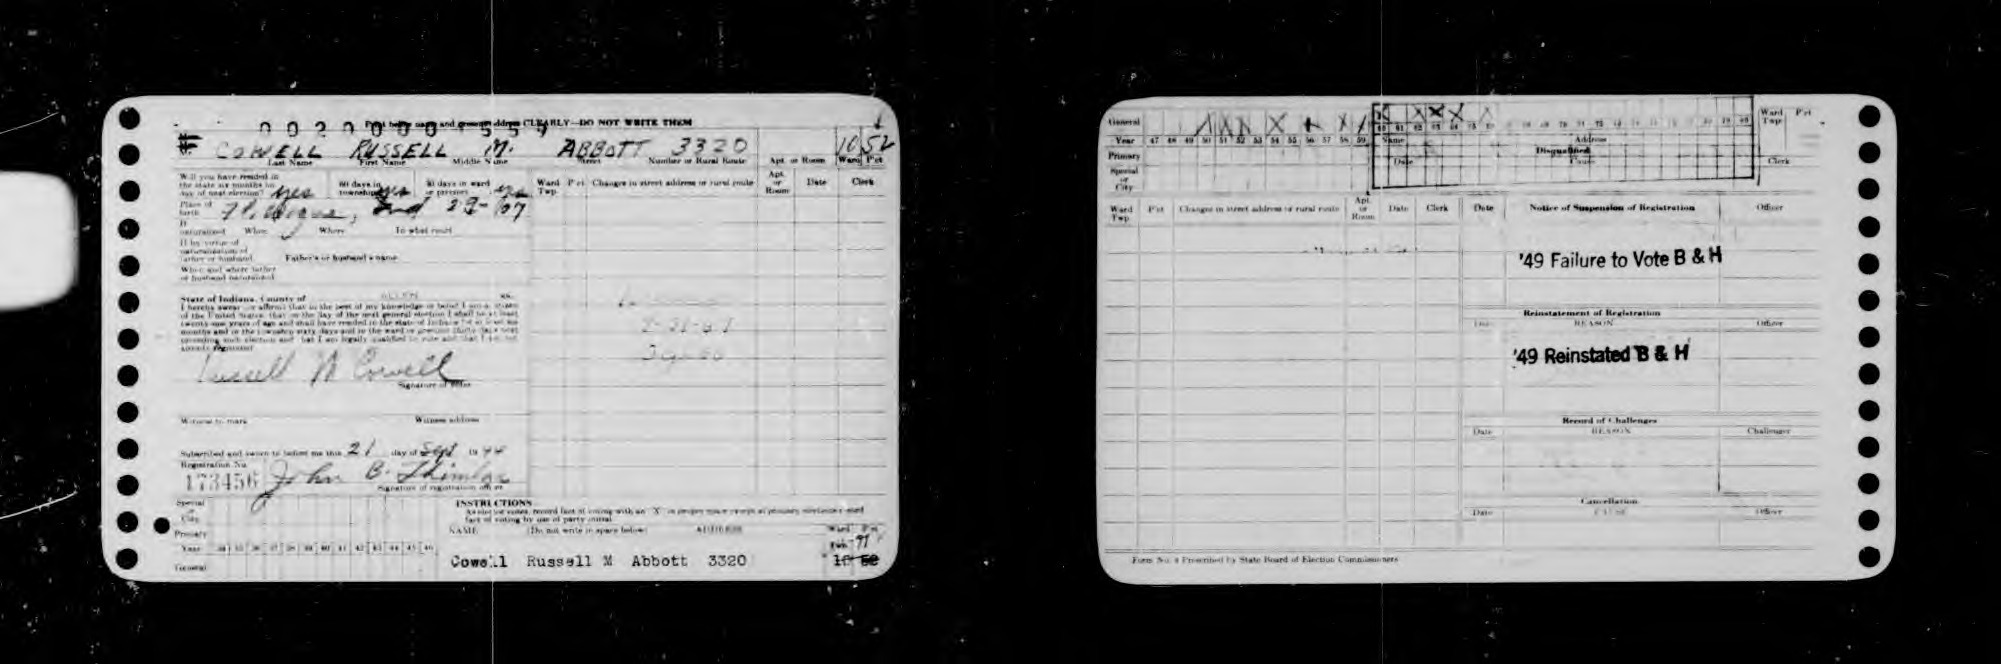 0 0 2 0 0 0 1 5 5 9
Print below name and present address CLEARLY—DO NOT WRITE THEM
COWELL RUSSELL M. ABBOTT 3320 10 52
Last Name First Name Middle Name Street Number or Rural Route Apt. or Room Ward P'ct
Will you have resided in
the state six months on
day of next election? yes 60 days in township yes 30 days in ward or precinct yes
Ward Twp. P'ct Changes in street address or rural route Apt. or Room Date Clerk
Place of birth Ind
If naturalized When Where To what court
If by virtue of
naturalization of
father or husband Father's or husband's name
When and where father
or husband naturalized
State of Indiana, County of ss.
I hereby swear or affirm that to the best of my knowledge or belief I am a citizen
of the United States, that on the day of the next general election I shall be at least
twenty-one years of age and shall have resided in the state of Indiana for at least six
months and in the township sixty days and in the ward or precinct thirty days next
preceding such election and that I am legally qualified to vote and that I am not
already registered
Russell M Cowell
Signature of voter
Witness to mark Witness address
Subscribed and sworn to before me this 21 day of Sept 19 44
Registration No.
173456 John B.
Signature of registration officer
Special
or
City
Primary
Year 34 35 36 37 38 39 40 41 42 43 44 45 46
General
INSTRUCTIONS
NAME (Do not write in space below) ADDRESS Ward P'ct
97
Cowell Russell M Abbott 3320 10 52
General
Year 47 48 49 50 51 52 53 54 55 56 57 58 59
Primary
Special
or
City
60 61 62 63 64 65 66
Name Address
Disqualified
Date Cause
Ward Twp P'ct
Clerk
Ward Twp P'ct Changes in street address or rural route Apt. or Room Date Clerk
Date Notice of Suspension of Registration Officer
'49 Failure to Vote B & H
Reinstatement of Registration
Date REASON Officer
'49 Reinstated B & H
Record of Challenges
Date REASON Challenger
Cancellation
Date CAUSE Officer
Form No. 4 Prescribed by State Board of Election Commissioners